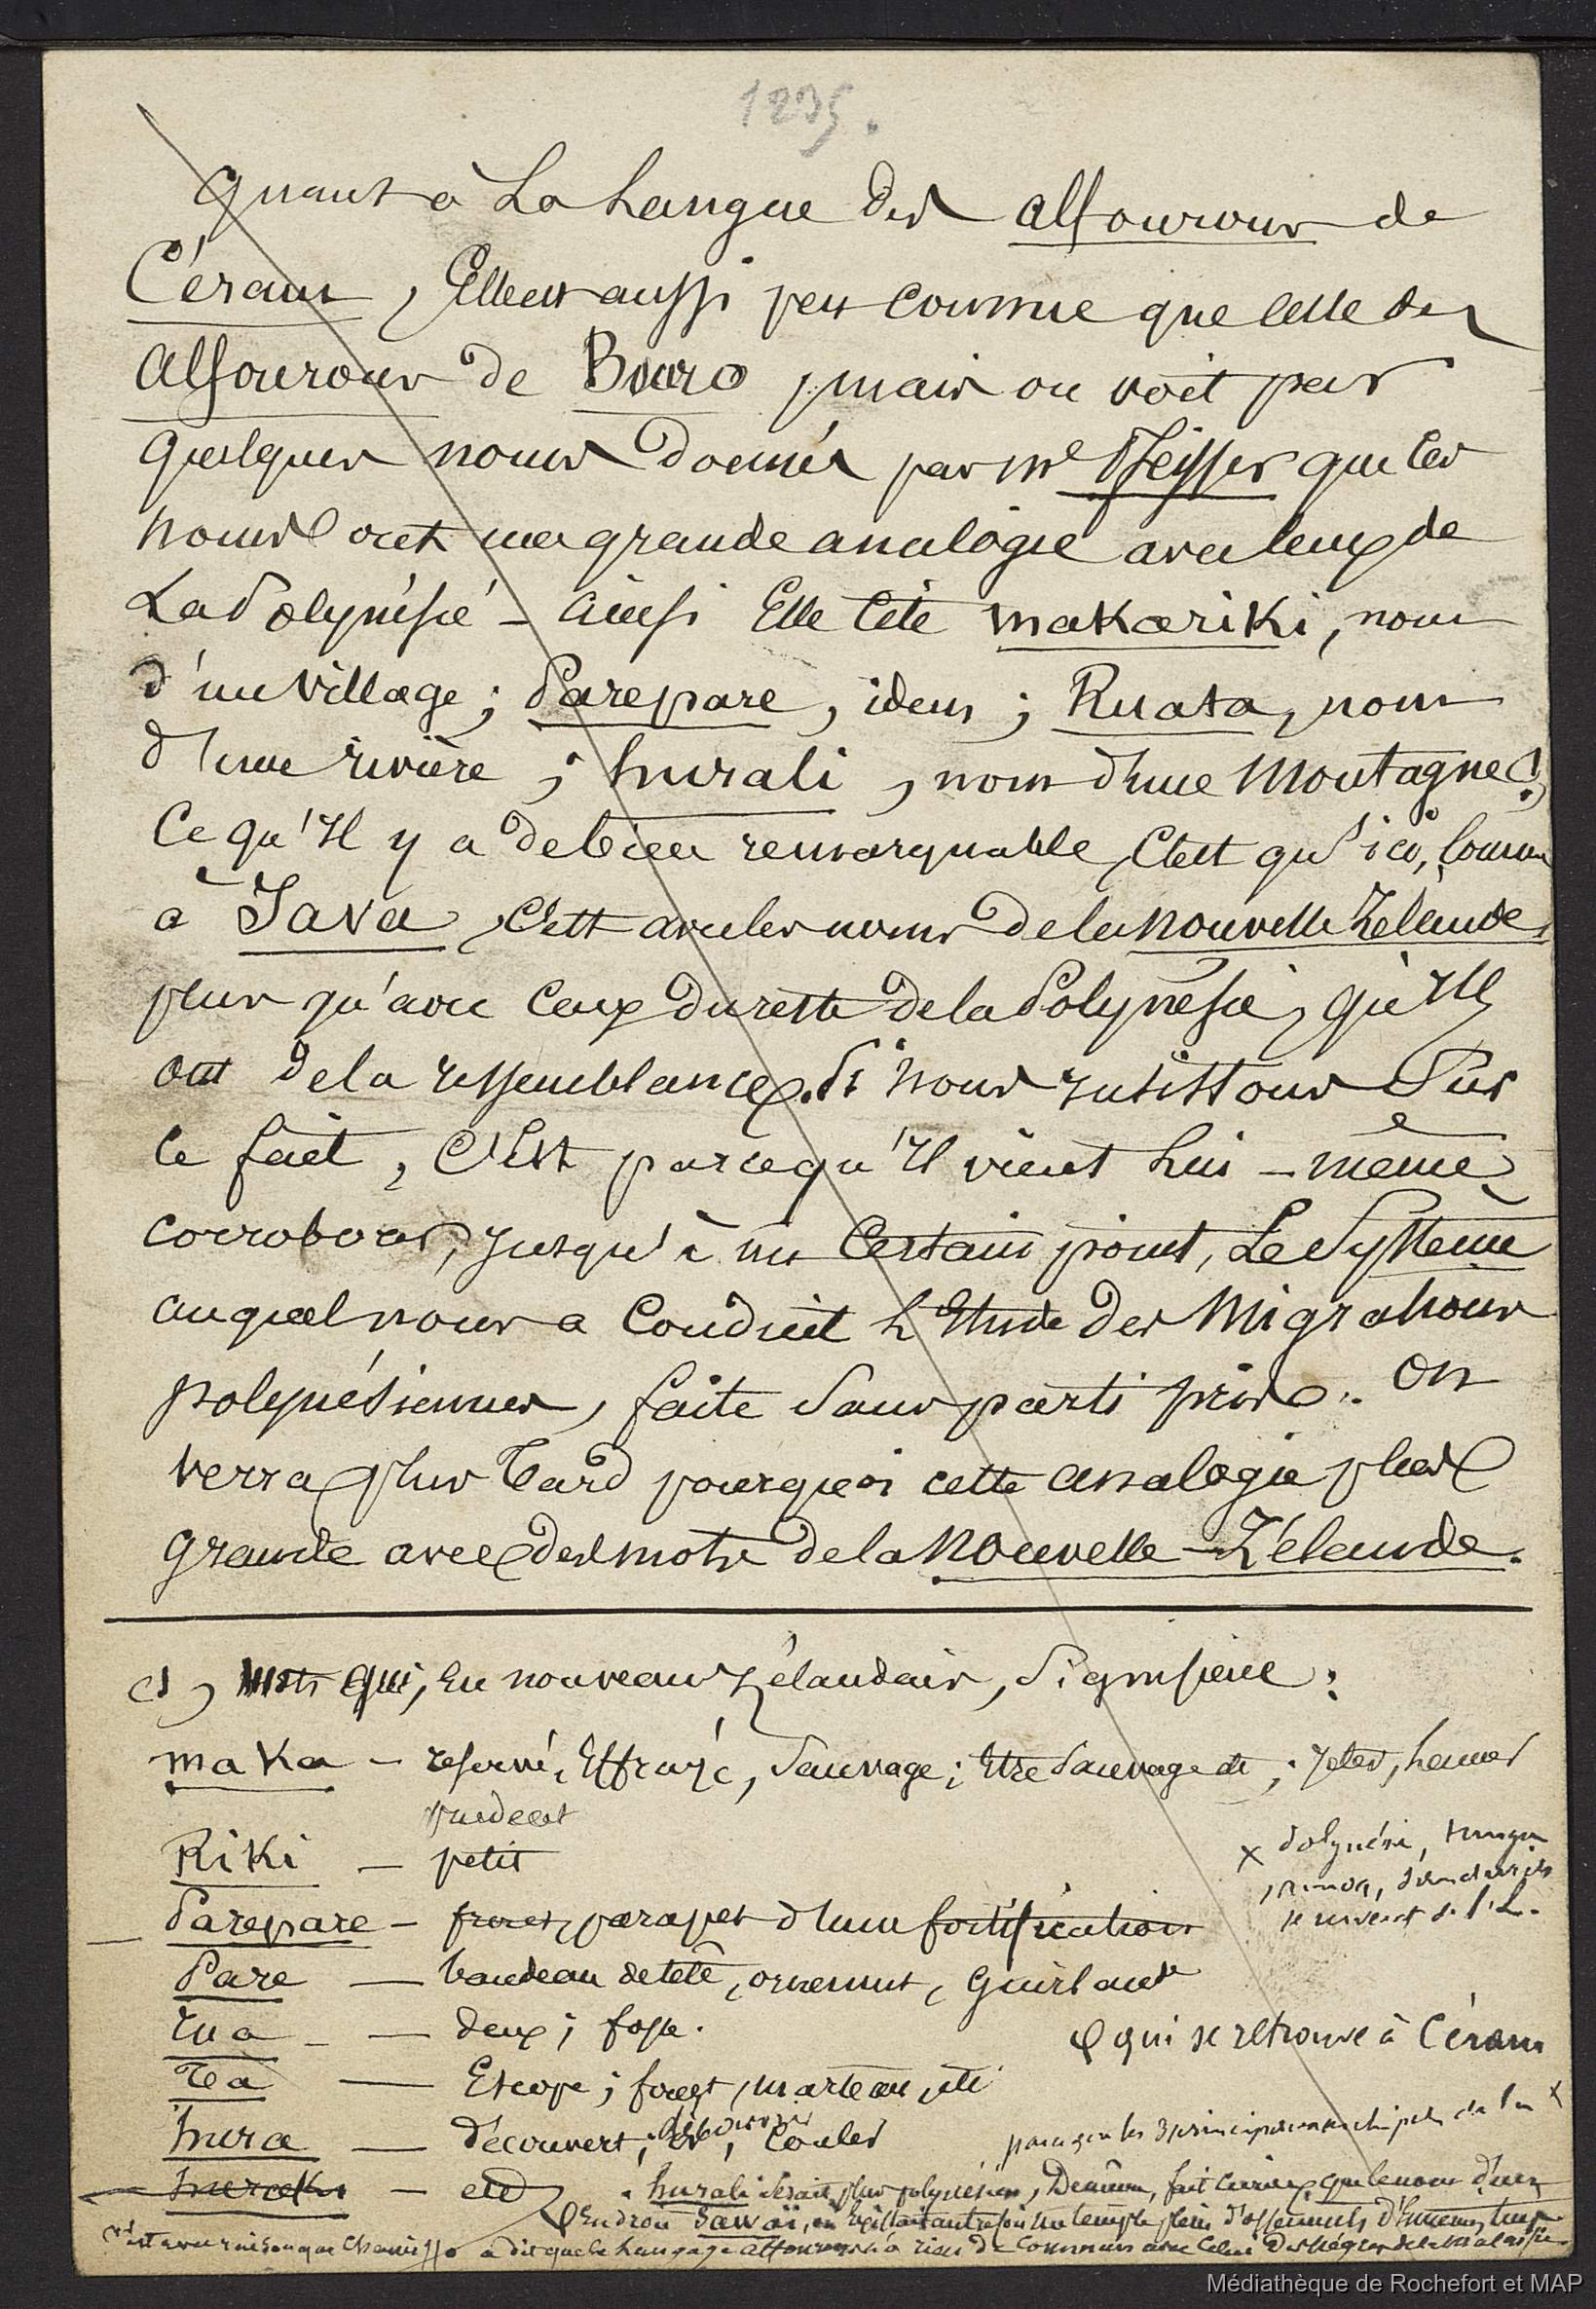 1235.
Quant à La Langue des alfourous de
Céram, Elle est aussi peu connue que celle des
alfourous de Bouro, mais on voit par
quelques noms donnés par Mr que les
noms ont une grande analogie avec ceux de
La Polynésie - ainsi Elle Cite makariki, nom
d'un village; Parepare, idem; Ruata, nom
d'une rivière; hurali, nom d'une Montagne (1)
Ce qu'Il y a de bien remarquable, C'est qu'ici, Comme
à Java, C'est avec les noms de la Nouvelle Zélande,
plus qu'avec Ceux du reste de la Polynésie, qu'Ils
ont de la ressemblance. Si nous insistons Sur
le fait, C'est parcequ'Il vient Lui-même
corroborer, jusqu'à un Certain point, Le Système
auquel nous a Conduit L'Etude des Migrations
polynésiennes, faite Sans parti pris. On
verra plus Tard pourquoi cette analogie plus
grande avec des mots de la Nouvelle-Zélande.
(1) Mots qui, En nouveau Zélandais, Signifient:
maka - reservé, Effrayé, Sauvage; Etre Sauvage etc; jeter, lancer
prudent
Riki - petit
Parepare - parapet d'une fortification
Pare - bandeau de tête, ornement, Guirlande
rua - deux; fosse.
Ta - Escope; fouet, marteau, etc
hura - découvert; découvrir, Couler
etc
x Polynésie, Tunga
se trouvent de l'L.
qui se retrouve à Céram
parcequ'on les 3 principaux archipels de la x
hurali serait plus polynésien, De même, fait curieux, que le nom d'un
Endroit Sawaï, où Existait autrefois un temple plein d'ossements d'hommes
C'est avec raison que Chamisso a dit que le Langage alfourou n'a rien de Commun avec Celui Des Nègres de la Malaisie
Médiathèque de Rochefort et MAP